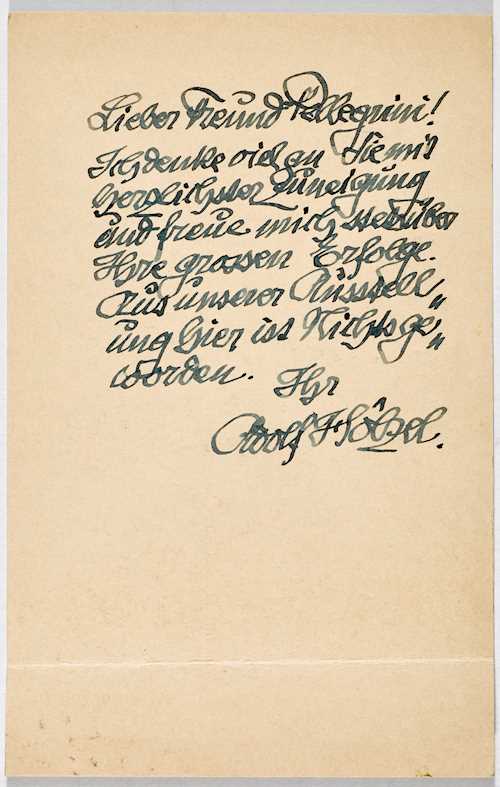 Lieber Freund Pellegrini!
Ich denke viel an Sie mit
herzlichster Zuneigung
und freue mich stets über
Ihre grossen Erfolge.
Aus unserer Ausstell„
ung hier ist Nichts ge„
worden. Ihr
Adolf Hölzel.